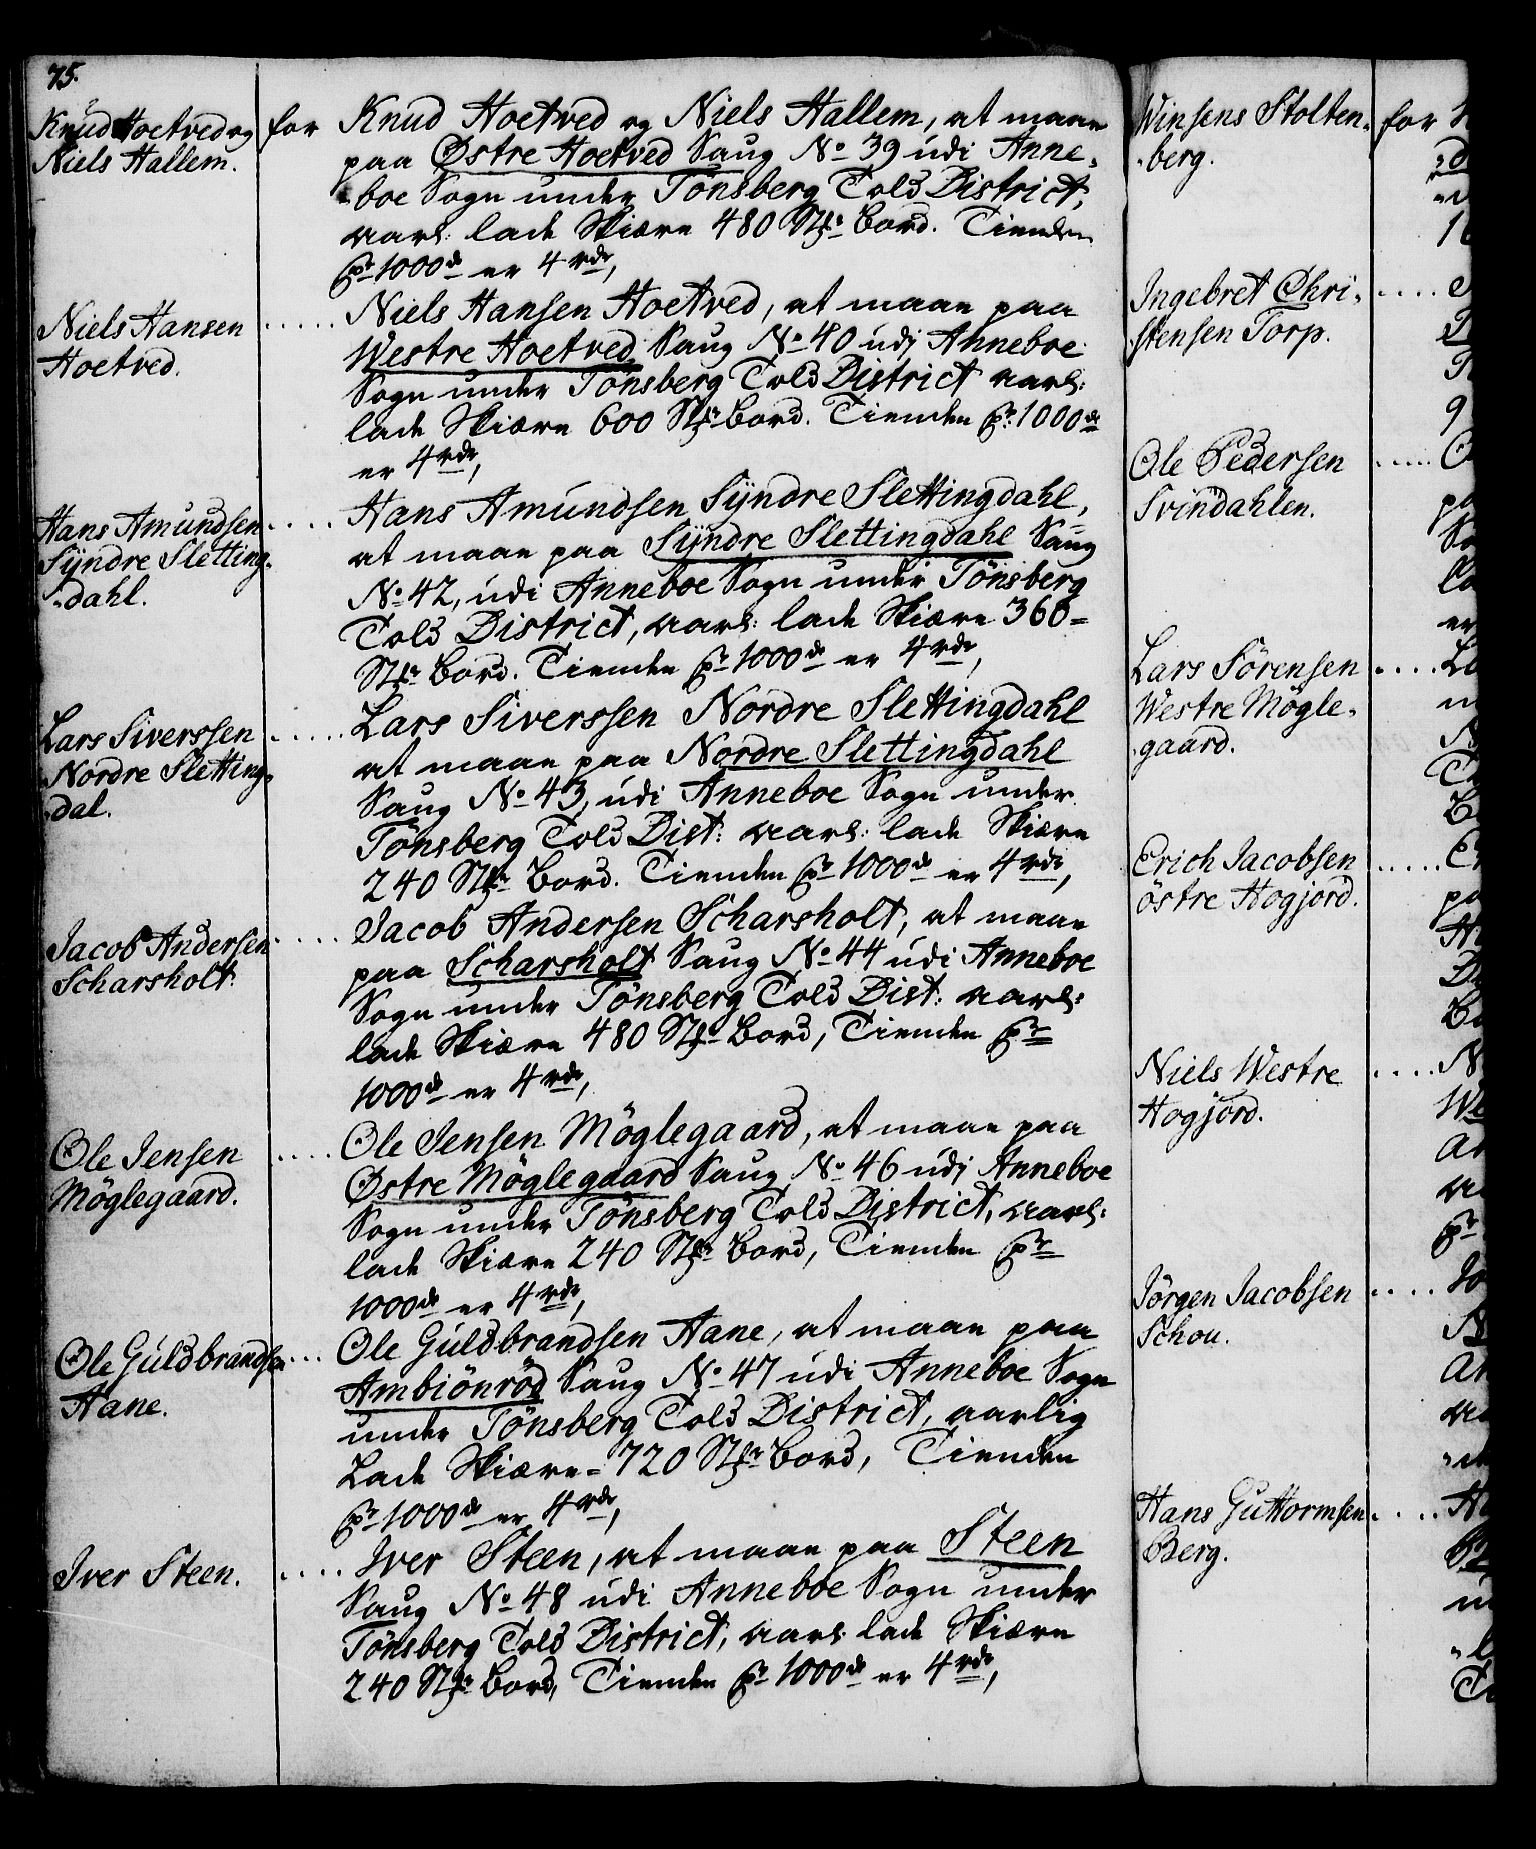 75.
Knud Hoetved og
Niels Hallem.
for
Knud Hoetved og Niels Hallem, at maae
paa Østre Hoetved Saug No 39 udi Anne-
-boe Sogn under Tönsberg Told District,
aarl: lade Skiære 480 Stkr Bord. Tienden
pr 1000de er 4 rdr,
Niels Hansen
Hoetved.
..... Niels Hansen Hoetved, at maae paa
Westre Hoetved Saug No 40 udj Anneboe
Sogn under Tönsberg Told District aarl:
lade Skiære 600 Stkr Bord. Tienden pr: 1000de
er 4 rdr,
Hans Amundsen
Syndre Sletting-
-dahl.
.... Hans Amundsen Syndre Slettingdahl,
at maae paa Syndre Slettingdahl Saug
No 42, udi Anneboe Sogn under Tönsberg
Told District, aarl: lade Skiære 360=
Stkr Bord. Tienden pr 1000de er 4 rdr,
Lars Siverssen
Nordre Sletting-
-dal.
..... Lars Siverssen Nordre Slettingdahl
at maae paa Nordre Slettingdahl
Saug No 43, udi Anneboe Sogn under
Tönsberg Told Dist: aarl: lade Skiære
240 Stkr Bord. Tienden pr 1000de er 4 rdr,
Jacob Andersen
Scharsholt.
..... Jacob Andersen Scharsholt, at maae
paa Scharsholt Saug No 44 udi Anneboe
Sogn under Tönsberg Told Dist: aarl:
lade Skiære 480 Stkr Bord, Tienden pr
1000de er 4 rdr,
Ole Jensen
Möglegaard.
..... Ole Jensen Möglegaard, at maae paa
Østre Möglegaard Saug No 46 udj Anneboe
Sogn under Tönsberg Told District, aarl:
lade Skiære 240 Stkr Bord, Tienden pr
1000de er 4 rdr,
Ole Guldbrandsen
Aane.
... Ole Guldbrandsen Aane, at maae paa
Ambiönröd Saug No 47 udi Anneboe Sogn
under Tönsberg Told District, aarlig
Lade Skiære= 720 Stkr Bord, Tienden
pr 1000de er 4 rdr,
Iver Steen.
.... Iver Steen, at maae paa Steen
Saug No 48 udi Anneboe Sogn under
Tönsberg Told District, aarl: lade Skiære
240 Stkr Bord, Tienden pr 1000de er 4 rdr,
Winsens Stolten-
-berg.
for
Ingebret Chri-
stensen Torp.
....
Ole Pedersen
Svindahlen.
.....
Lars Sörensen
Westre Mögle-
-gaard.
....
Erich Jacobsen
östre Hogjord.
.....
Niels Westre
Hogjord.
....
Jörgen Jacobsen
Schou.
....
Hans Guttormsen
Berg.
....